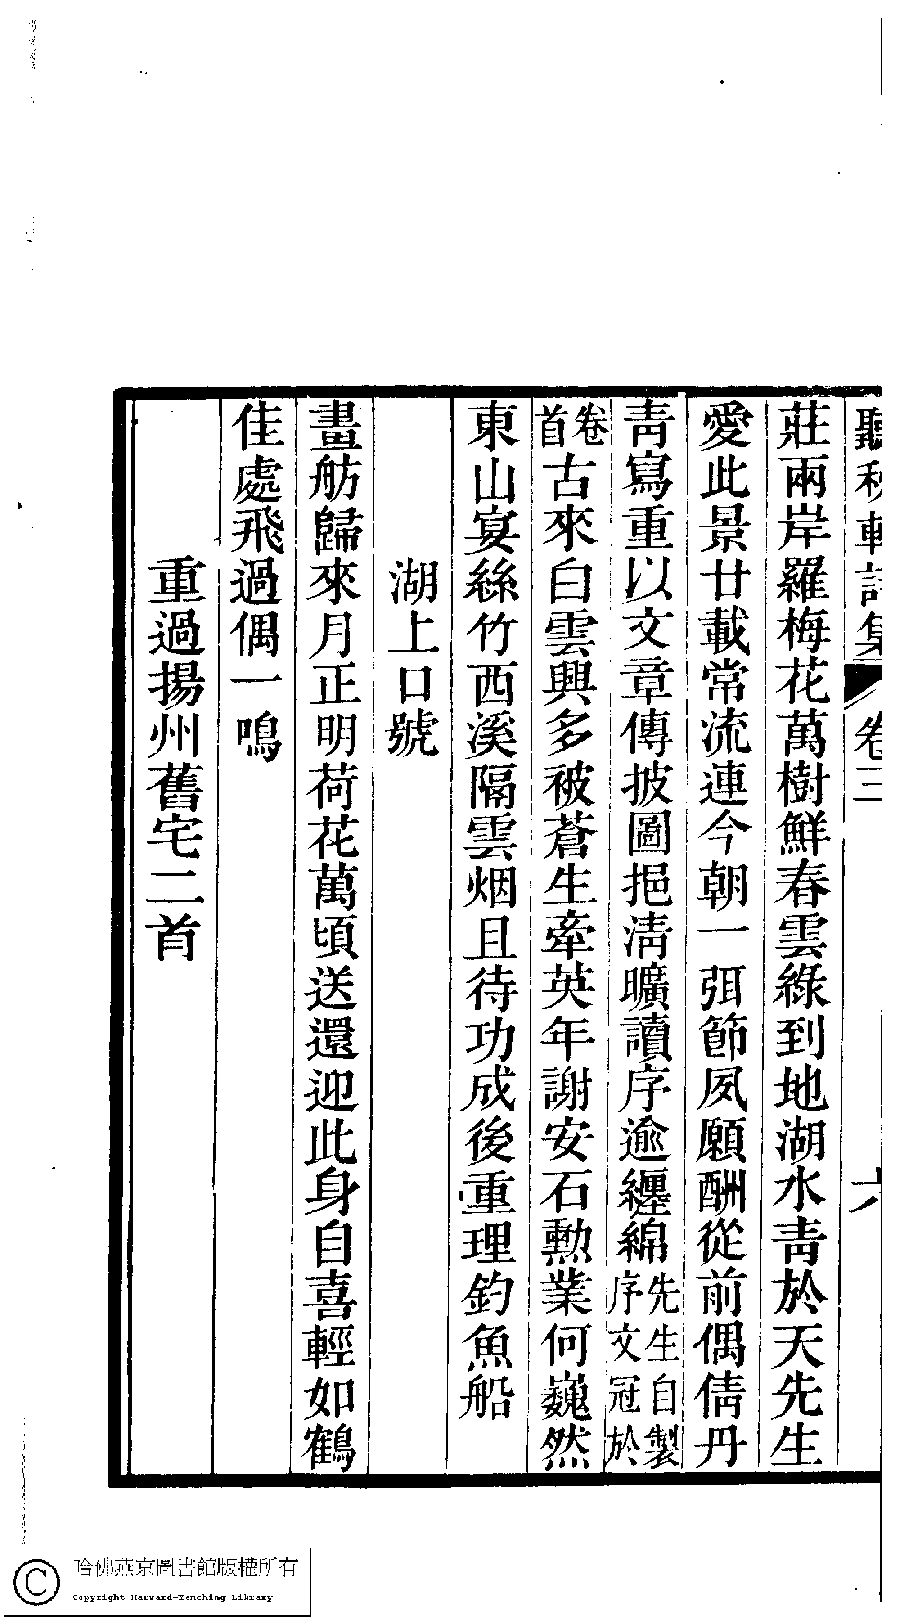 聽秋軒詩集 卷三 六
莊兩岸羅梅花萬樹鮮春雲綠到地湖水靑於天先生
愛此景廿載常流連今朝一弭節夙願酬從前偶倩丹
靑寫重以文章傳披圖挹淸曠讀序逾纏綿先生自製序文冠於
卷首古來白雲興多被蒼生牽英年謝安石勳業何巍然
東山宴絲竹西溪隔雲烟且待功成後重理釣魚船
湖上口號
畫舫歸來月正明荷花萬頃送還迎此身自喜輕如鶴
佳處飛過偶一鳴
重過揚州舊宅二首
哈佛燕京圖書館版權所有
Copyright Harvard-Yenching Library